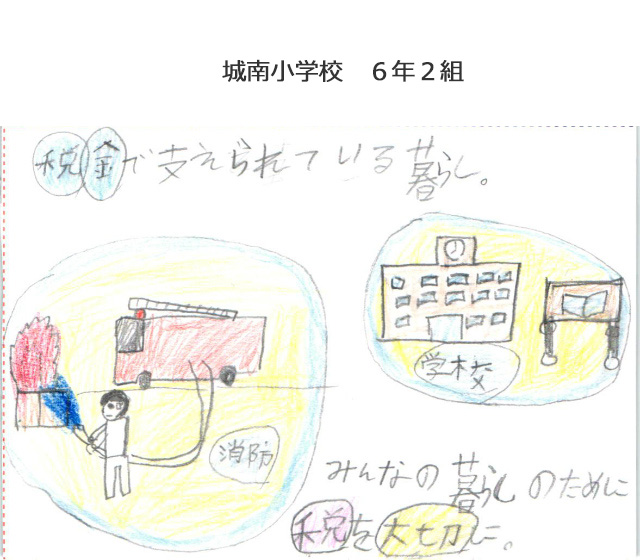 城南小学校　６年２組
税金で支えられている暮らし。
学校
消防
みんなの暮らしのために
税を大切に。